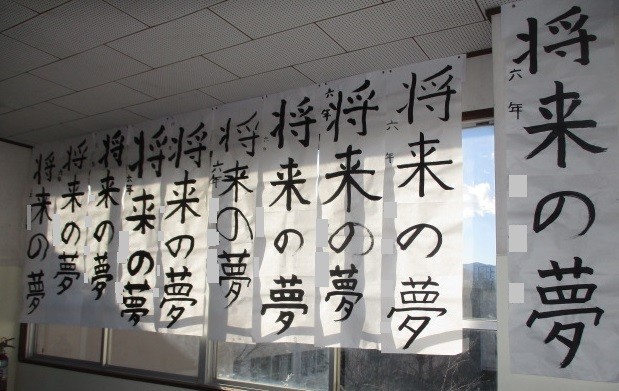 将来の夢
六年
将来の夢
六年
将来の夢
六年
将来の夢
将来の夢
六年
将来の夢
将来の夢
六年
将来の夢
将来の夢
将来の夢